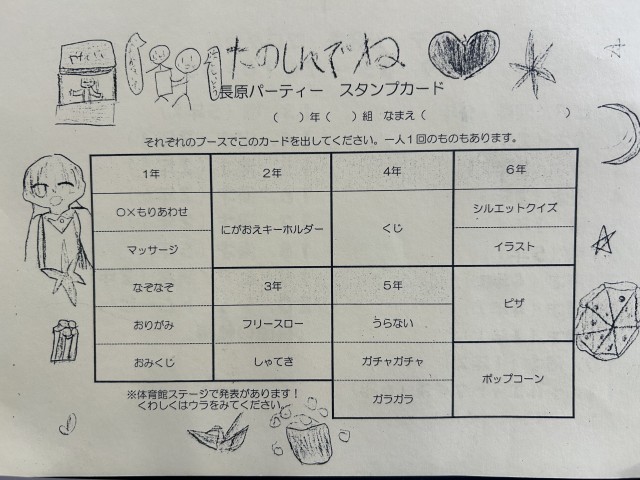 たのしんでね
長原パーティー　スタンプカード
（　　）年（　　）組　なまえ（　　　　　　　　　　）
それぞれのブースでこのカードを出してください。一人１回のものもあります。
１年
○×もりあわせ
マッサージ
なぞなぞ
おりがみ
おみくじ
２年
にがおえキーホルダー
３年
フリースロー
しゃてき
４年
くじ
５年
うらない
ガチャガチャ
ガラガラ
６年
シルエットクイズ
イラスト
ピザ
ポップコーン
※体育館ステージで発表があります！
くわしくはウラをみてください。